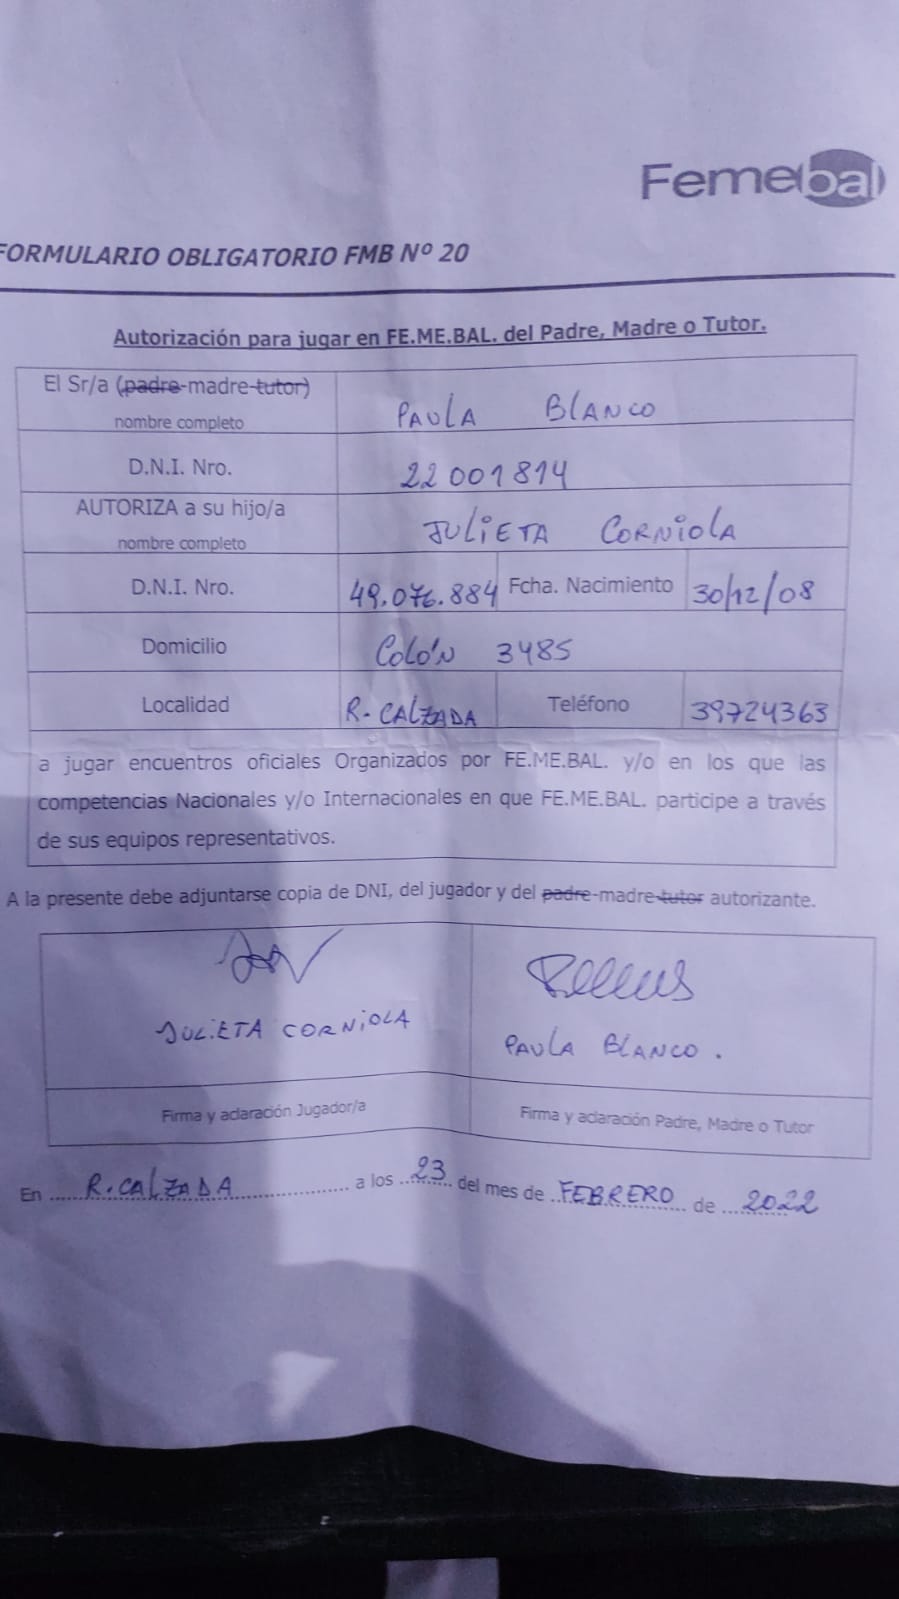 Femebal
FORMULARIO OBLIGATORIO FMB Nº 20
Autorización para jugar en FE.ME.BAL. del Padre, Madre o Tutor.
El Sr/a (padre-madre-tutor)
nombre completo
PAULA BLANCO
D.N.I. Nro.
22001814
AUTORIZA a su hijo/a
nombre completo
JULIETA CORNIOLA
D.N.I. Nro.
49.076.884
Fcha. Nacimiento
30/12/08
Domicilio
COLÓN 3485
Localidad
R. CALZADA
Teléfono
39724363
a jugar encuentros oficiales Organizados por FE.ME.BAL. y/o en los que las
competencias Nacionales y/o Internacionales en que FE.ME.BAL. participe a través
de sus equipos representativos.
A la presente debe adjuntarse copia de DNI, del jugador y del padre-madre-tutor autorizante.
JULIETA CORNIOLA
PAULA BLANCO.
Firma y aclaración Jugador/a
Firma y aclaración Padre, Madre o Tutor
En R. CALZADA a los 23 del mes de FEBRERO de 2022